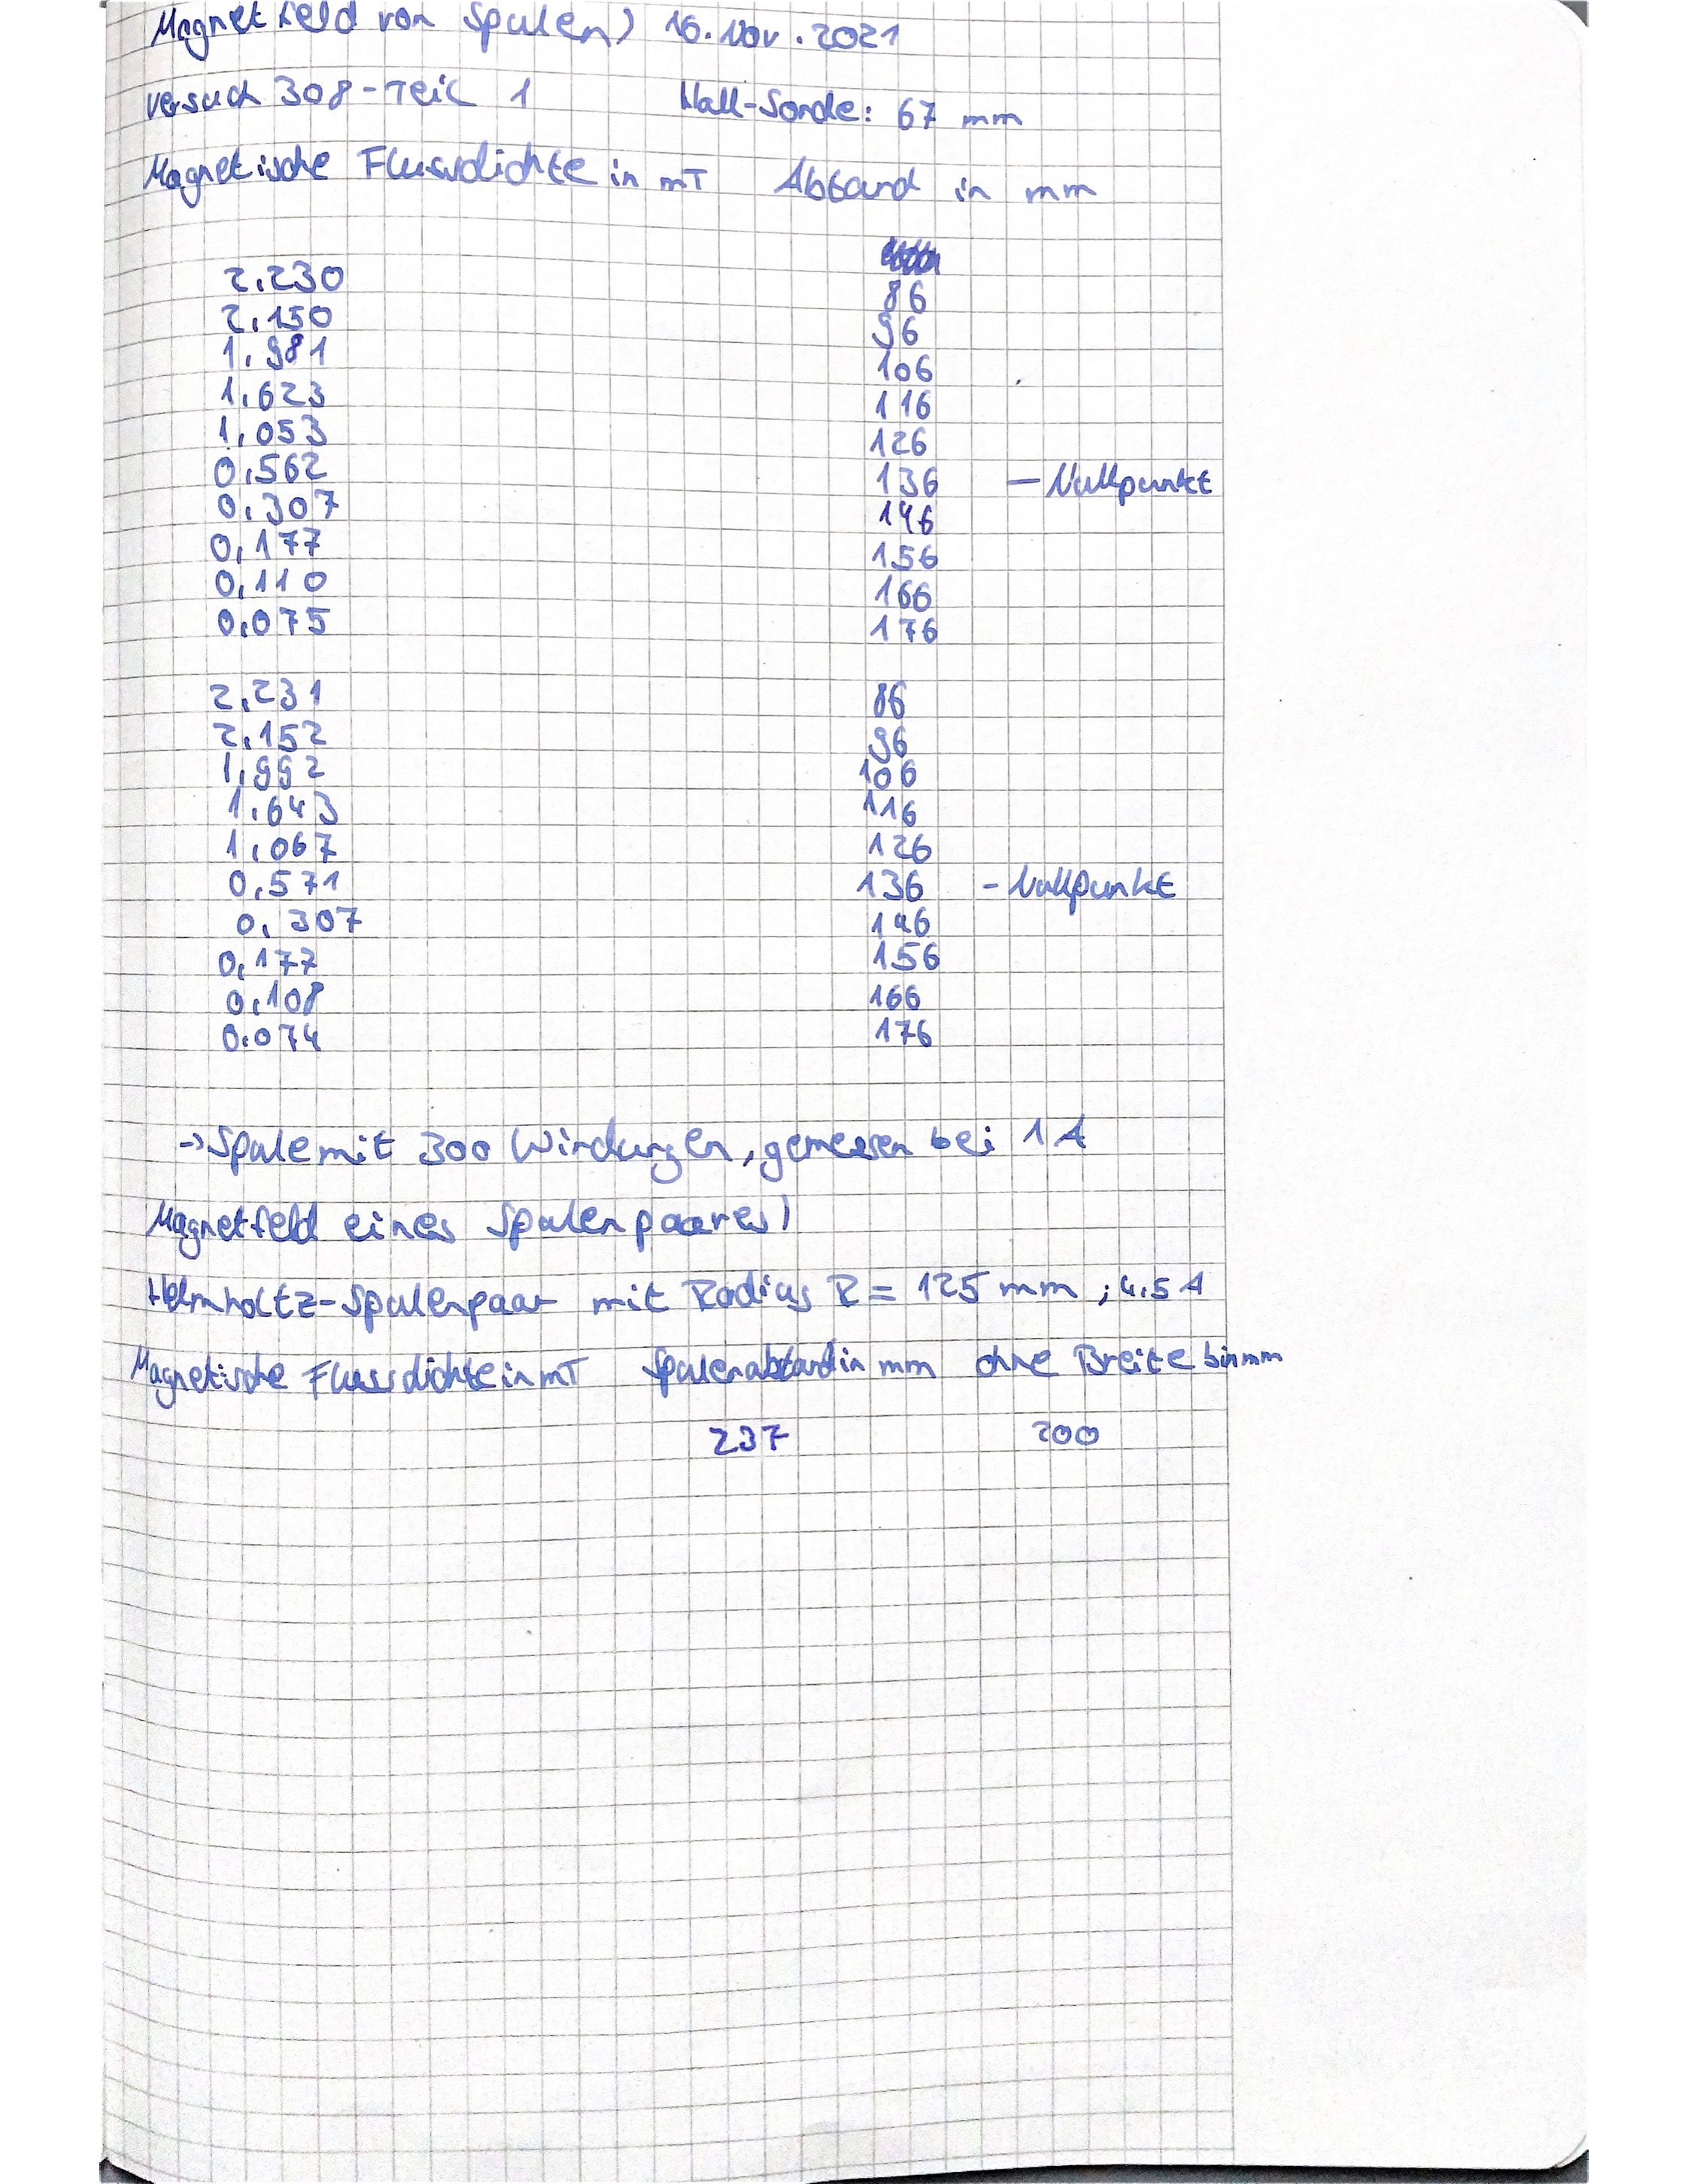 Magnetfeld von Spulen) 16. Nov. 2021
Versuch 308 - Teil 1 Hall-Sonde: 67 mm
Magnetische Flussdichte in mT Abstand in mm
2.230 86
2.150 96
1.981 106
1.623 116
1.053 126
0.562 136 — Nullpunkt
0.307 146
0.177 156
0.110 166
0.075 176
2.231 86
2.152 96
1.992 106
1.643 116
1.067 126
0.571 136 - Nullpunkt
0.307 146
0.177 156
0.108 166
0.074 176
→ Spule mit 300 Windungen, gemessen bei 1 A
Magnetfeld eines Spulenpaares)
Helmholtz-Spulenpaar mit Radius R = 125 mm ; 4.5 A
Magnetische Flussdichte in mT Spulenabstand in mm ohne Breite b in mm
237 200